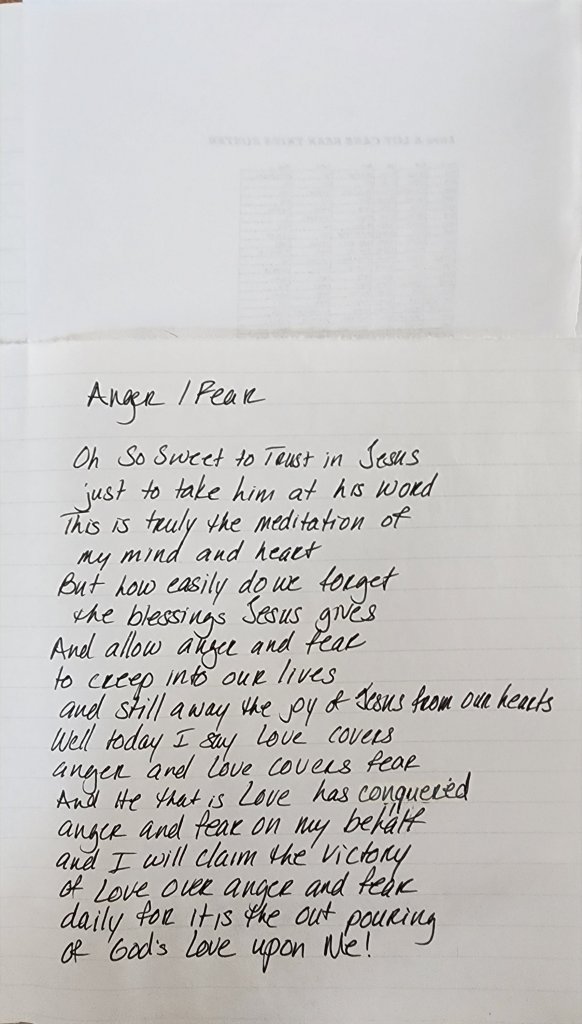 Anger / Fear
Oh So Sweet to Trust in Jesus
just to take him at his word
This is truly the meditation of
my mind and heart
But how easily do we forget
the blessings Jesus gives
And allow anger and fear
to creep into our lives
and still away the joy of Jesus from our hearts
Well today I say Love covers
anger and Love covers fear
And He that is Love has conquered
anger and fear on my behalf
and I will claim the victory
of Love over anger and fear
daily for it is the out pouring
of God's Love upon Me!